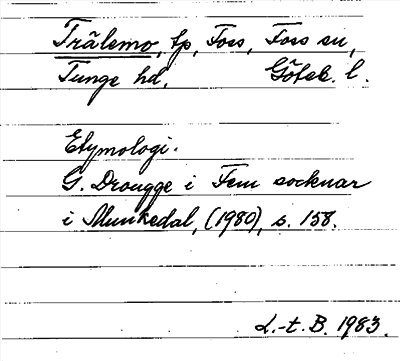 Trälemo, tp, Foss, Foss sn,
Tunge hd, Göteb. l.
Etymologi.
G. Drougge i Fem socknar
i Munkedal, (1980), s. 158.
L.-t. B. 1983.